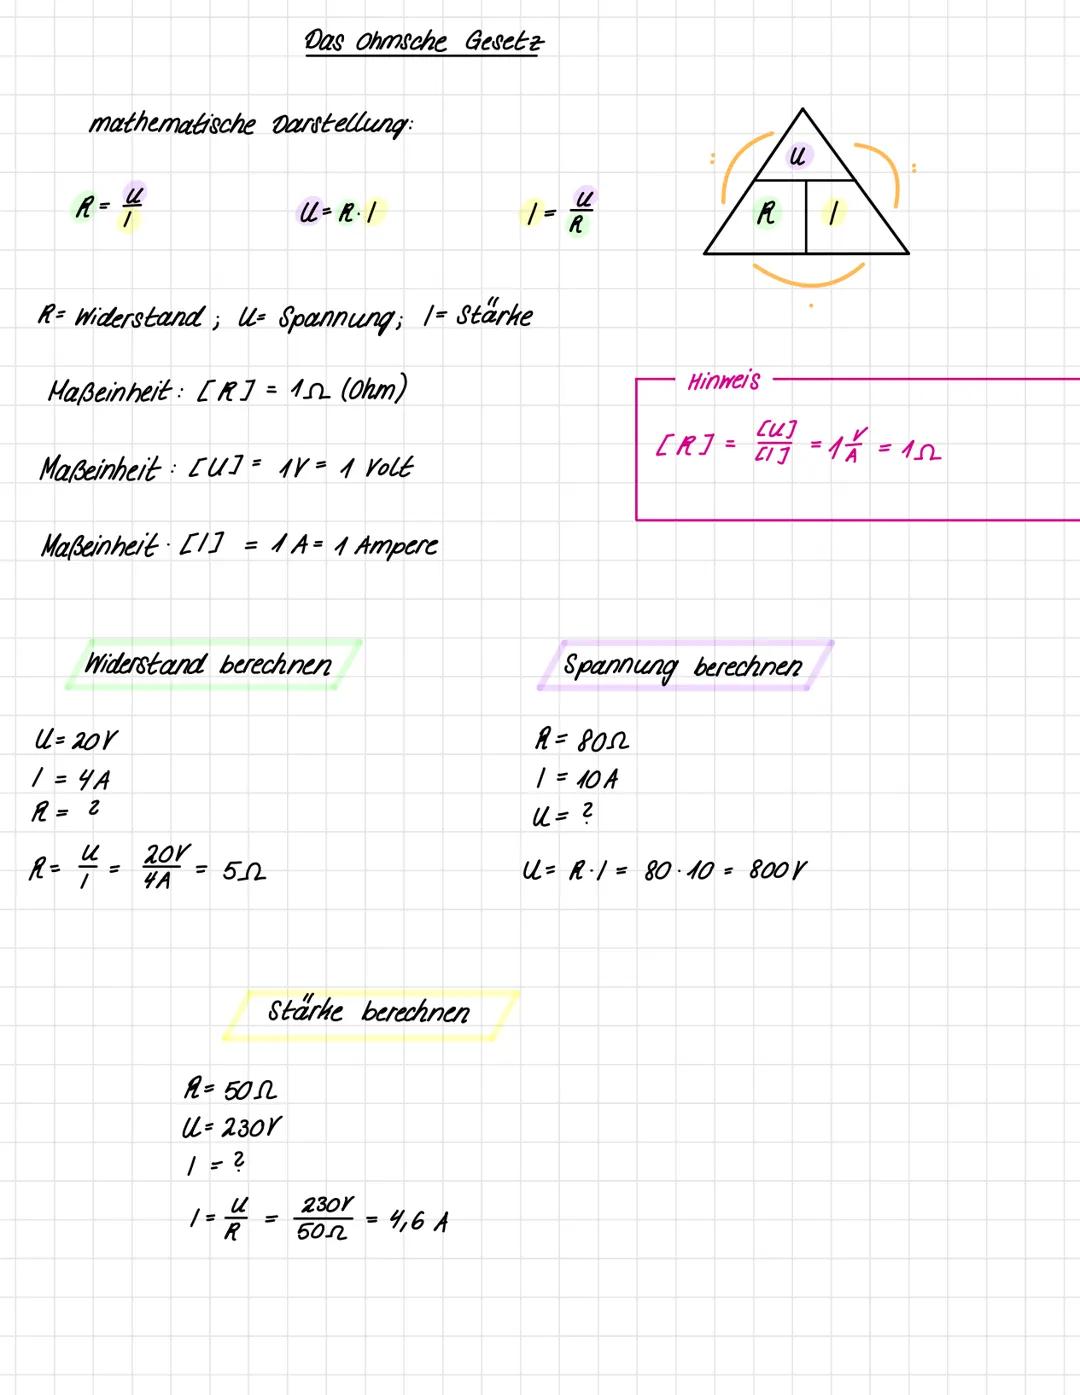 Das Ohmsche Gesetz
mathematische Darstellung:
R = U/I
U = R · I
I = U/R
:
U
:
R
I
·
R = Widerstand ; U = Spannung; I = Stärke
Maßeinheit : [R] = 1Ω (Ohm)
Maßeinheit : [U] = 1V = 1 Volt
Maßeinheit · [I] = 1 A = 1 Ampere
Hinweis
[R] = [U]/[I] = 1 V/A = 1Ω
Widerstand berechnen
U = 20V
I = 4A
R = ?
R = U/I = 20V/4A = 5Ω
Spannung berechnen
R = 80Ω
I = 10A
U = ?
U = R · I = 80 · 10 = 800V
Stärke berechnen
R = 50Ω
U = 230V
I = ?
I = U/R = 230V/50Ω = 4,6 A